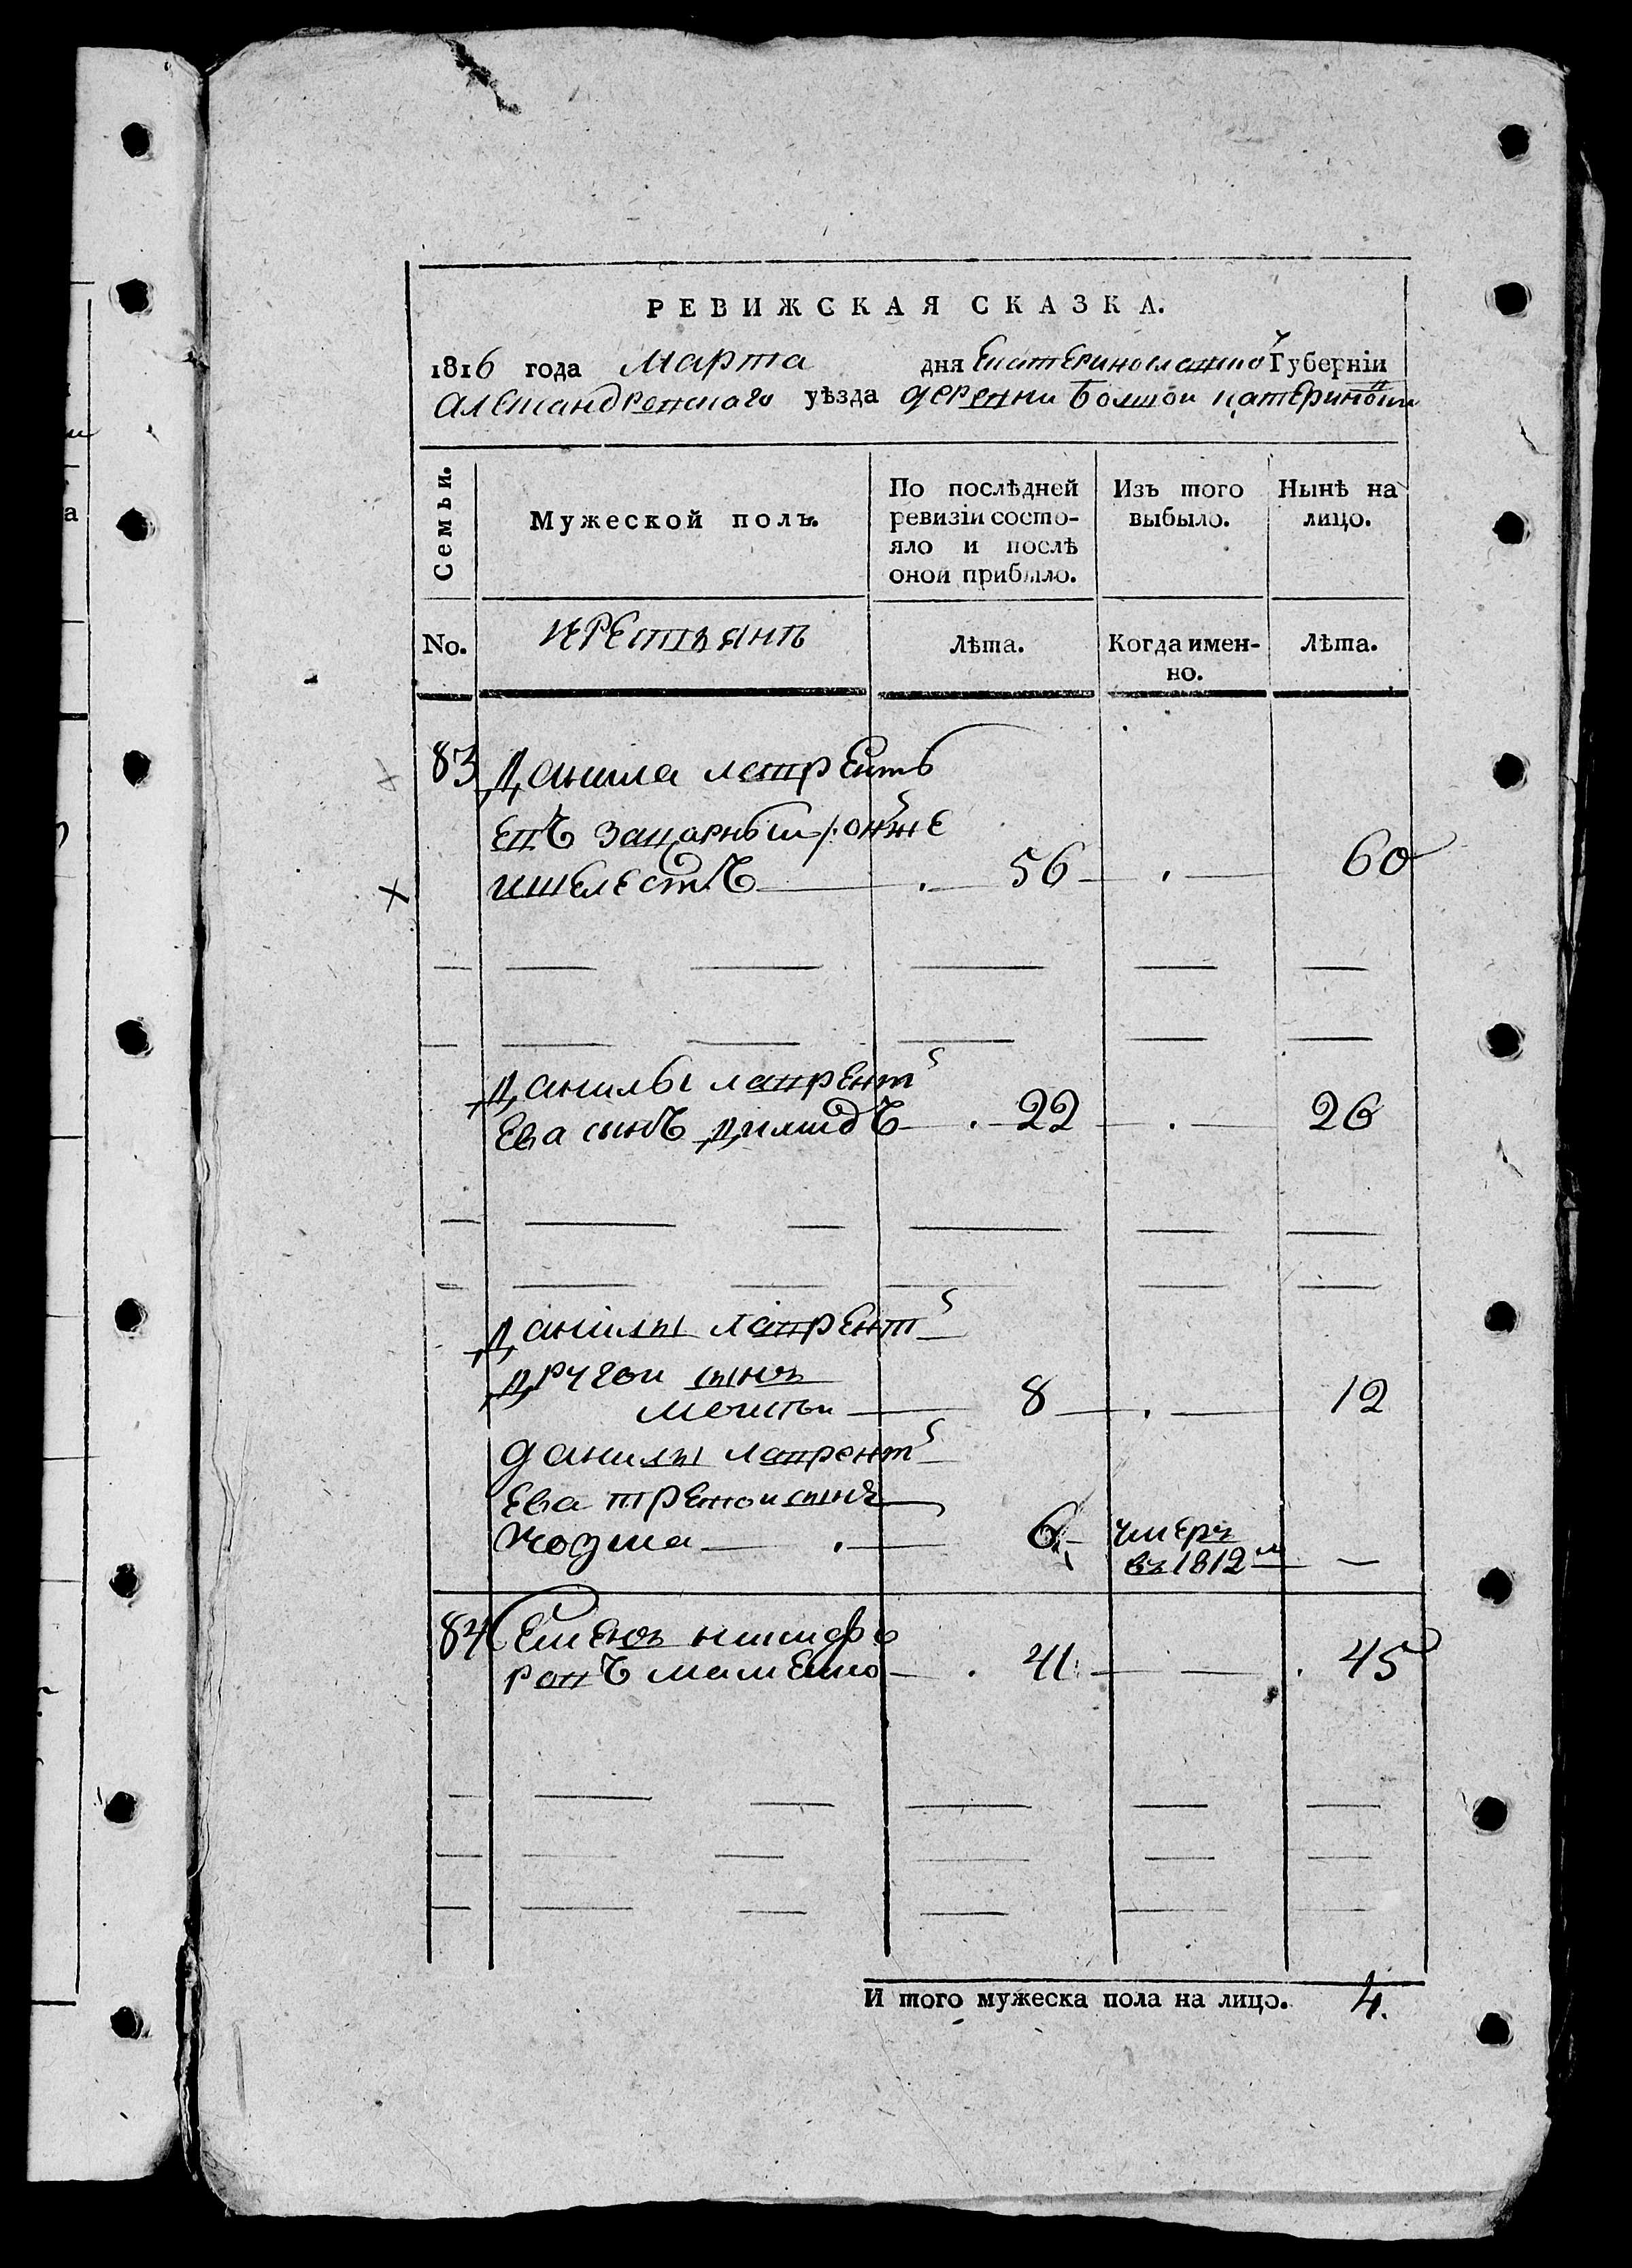 РЕВИЖСКАЯ СКАЗКА.
1816 года Марта дня Екатеринославской Губернїи
Александровскаго уѣзда деревни Болшой Катериновки
Семьи. Мужеской полъ. По послѣдней ревизїи состо- яло и послѣ оной прибыло. Изъ того выбыло. Нынѣ на лицо.
No. крестьянъ Лѣта. Когда имен- но. Лѣта.
83 Данила Лаврентъ
евъ /: онъже
Шелестъ 56 60
Данилы Лаврентъ
ева сынъ 22 26
Данилы Лаврент
другой сынъ
8 12
Данилы Лаврент
ева третой сынъ
Козма 6 умеръ
въ 1812м
84 Семенъ Никифо
ровъ 41 45
И того мужеска пола на лицо. 4.